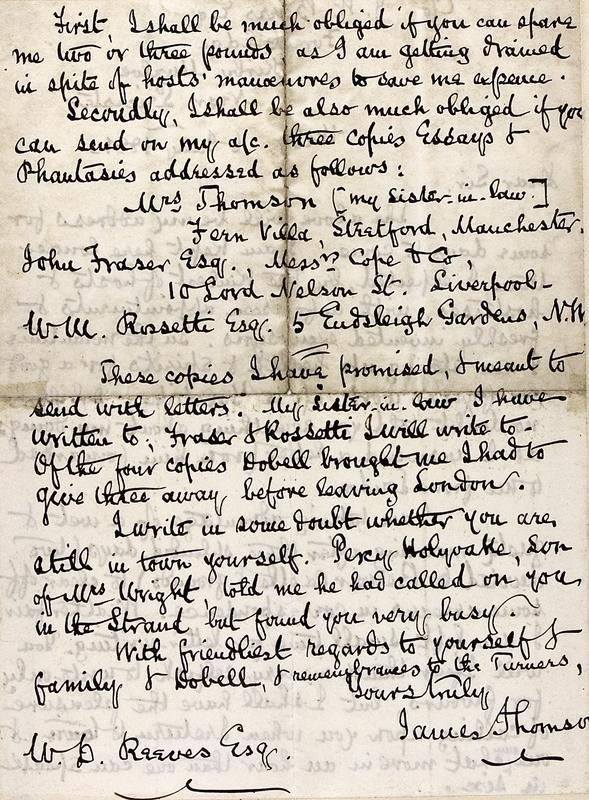 First, I shall be much obliged if you can spare
me two or three pounds, as I am getting drained
in spite of hosts' manœuvres to save me expence.
Secondly, I shall be also much obliged if you
can send on my a/c. three copies Essays &
Phantasies addressed as follows:
Mrs Thomson [my Sister-in-law.]
Fern Villa, Stretford, Manchester.
John Fraser Esq., Messrs Cope & Co,
10 Lord Nelson St. Liverpool-
W. M. Rossetti Esq. 5 Endsleigh Gardens, N.W
These copies I have promised, & meant to
send with letters. My Sister-in-law I have
written to; Fraser & Rossetti I will write to.
Of the four copies Dobell brought me I had to
give three away before leaving London.
I write in some doubt whether you are
still in town yourself. Percy Holyoake, Son
of Mrs Wright, told me he had called on you
in the Strand but found you very busy.
With friendliest regards to yourself &
family & Dobell, & remembrances to the Turners,
Yours truly
James Thomso
W. D. Reeves Esq.